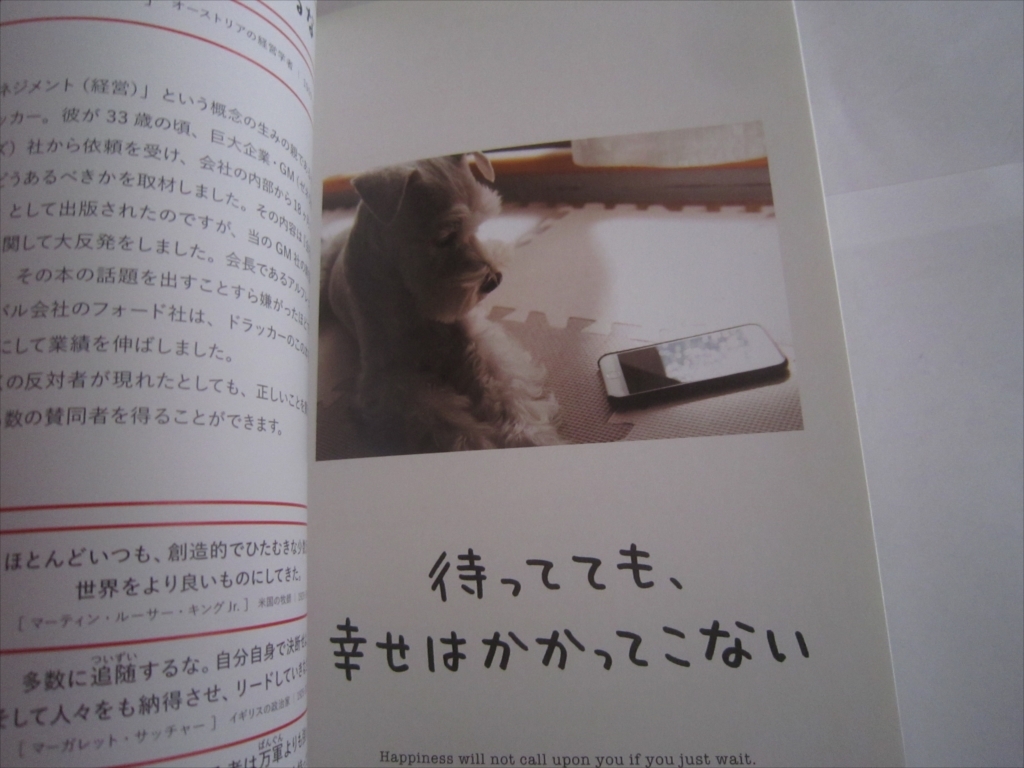 ] オーストリアの経営学者
ネジメント(経営)」という概念の生みの親
ッカー。彼が33歳の頃、巨大企業・GM(
ズ)社から依頼を受け、会社の内部から18
どうあるべきかを取材しました。その内容は
として出版されたのですが、当のGM社の
関して大反発をしました。会長であるアル
その本の話題を出すことすら嫌がったほど
バル会社のフォード社は、ドラッカーのこの
にして業績を伸ばしました。
の反対者が現れたとしても、正しいことを
数の賛同者を得ることができます。
ほとんどいつも、創造的でひたむきな少数
世界をより良いものにしてきた。
[マーティン・ルーサー・キングJr.] 米国の牧師
多数に追随するな。自分自身で決断せよ。
ついずい
そして人々をも納得させ、リードしていきな
[マーガレット・サッチャー] イギリスの政治家
ばんぐん
者は万軍よりも
待ってても、
幸せはかかってこない
Happiness will not call upon you if you just wait.